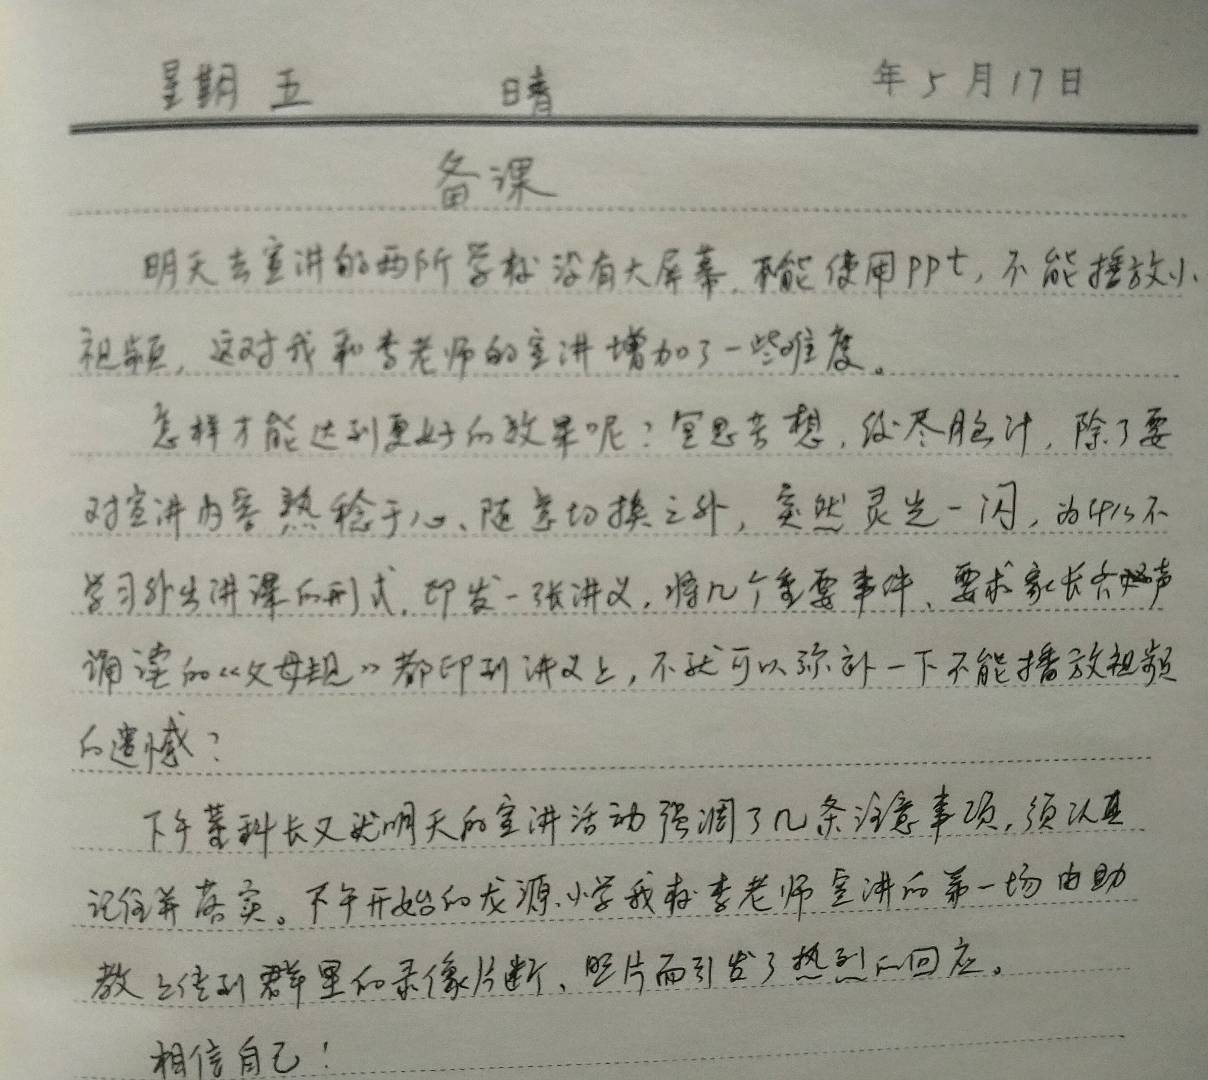 星期五 晴 年5月17日
备课
明天去宣讲的两所学校没有大屏幕,不能使用ppt,不能播放小
视频,这对我和李老师的宣讲增加了一些难度。
怎样才能达到更好的效果呢?冥思苦想,绞尽脑汁,除了要
对宣讲内容熟稔于心、随意切换之外,突然灵光一闪,为什么不
学习外出讲课的形式,印发一张讲义,将几个重要事件、要求家长齐声
诵读的《父母规》都印到讲义上,不就可以弥补一下不能播放视频
的遗憾?
下午董科长又就明天的宣讲活动强调了几条注意事项,须认真
记住并落实。下午开始的龙源小学我和李老师宣讲的第一场由助
教上传到群里的录像片断、照片而引发了热烈的回应。
相信自己!